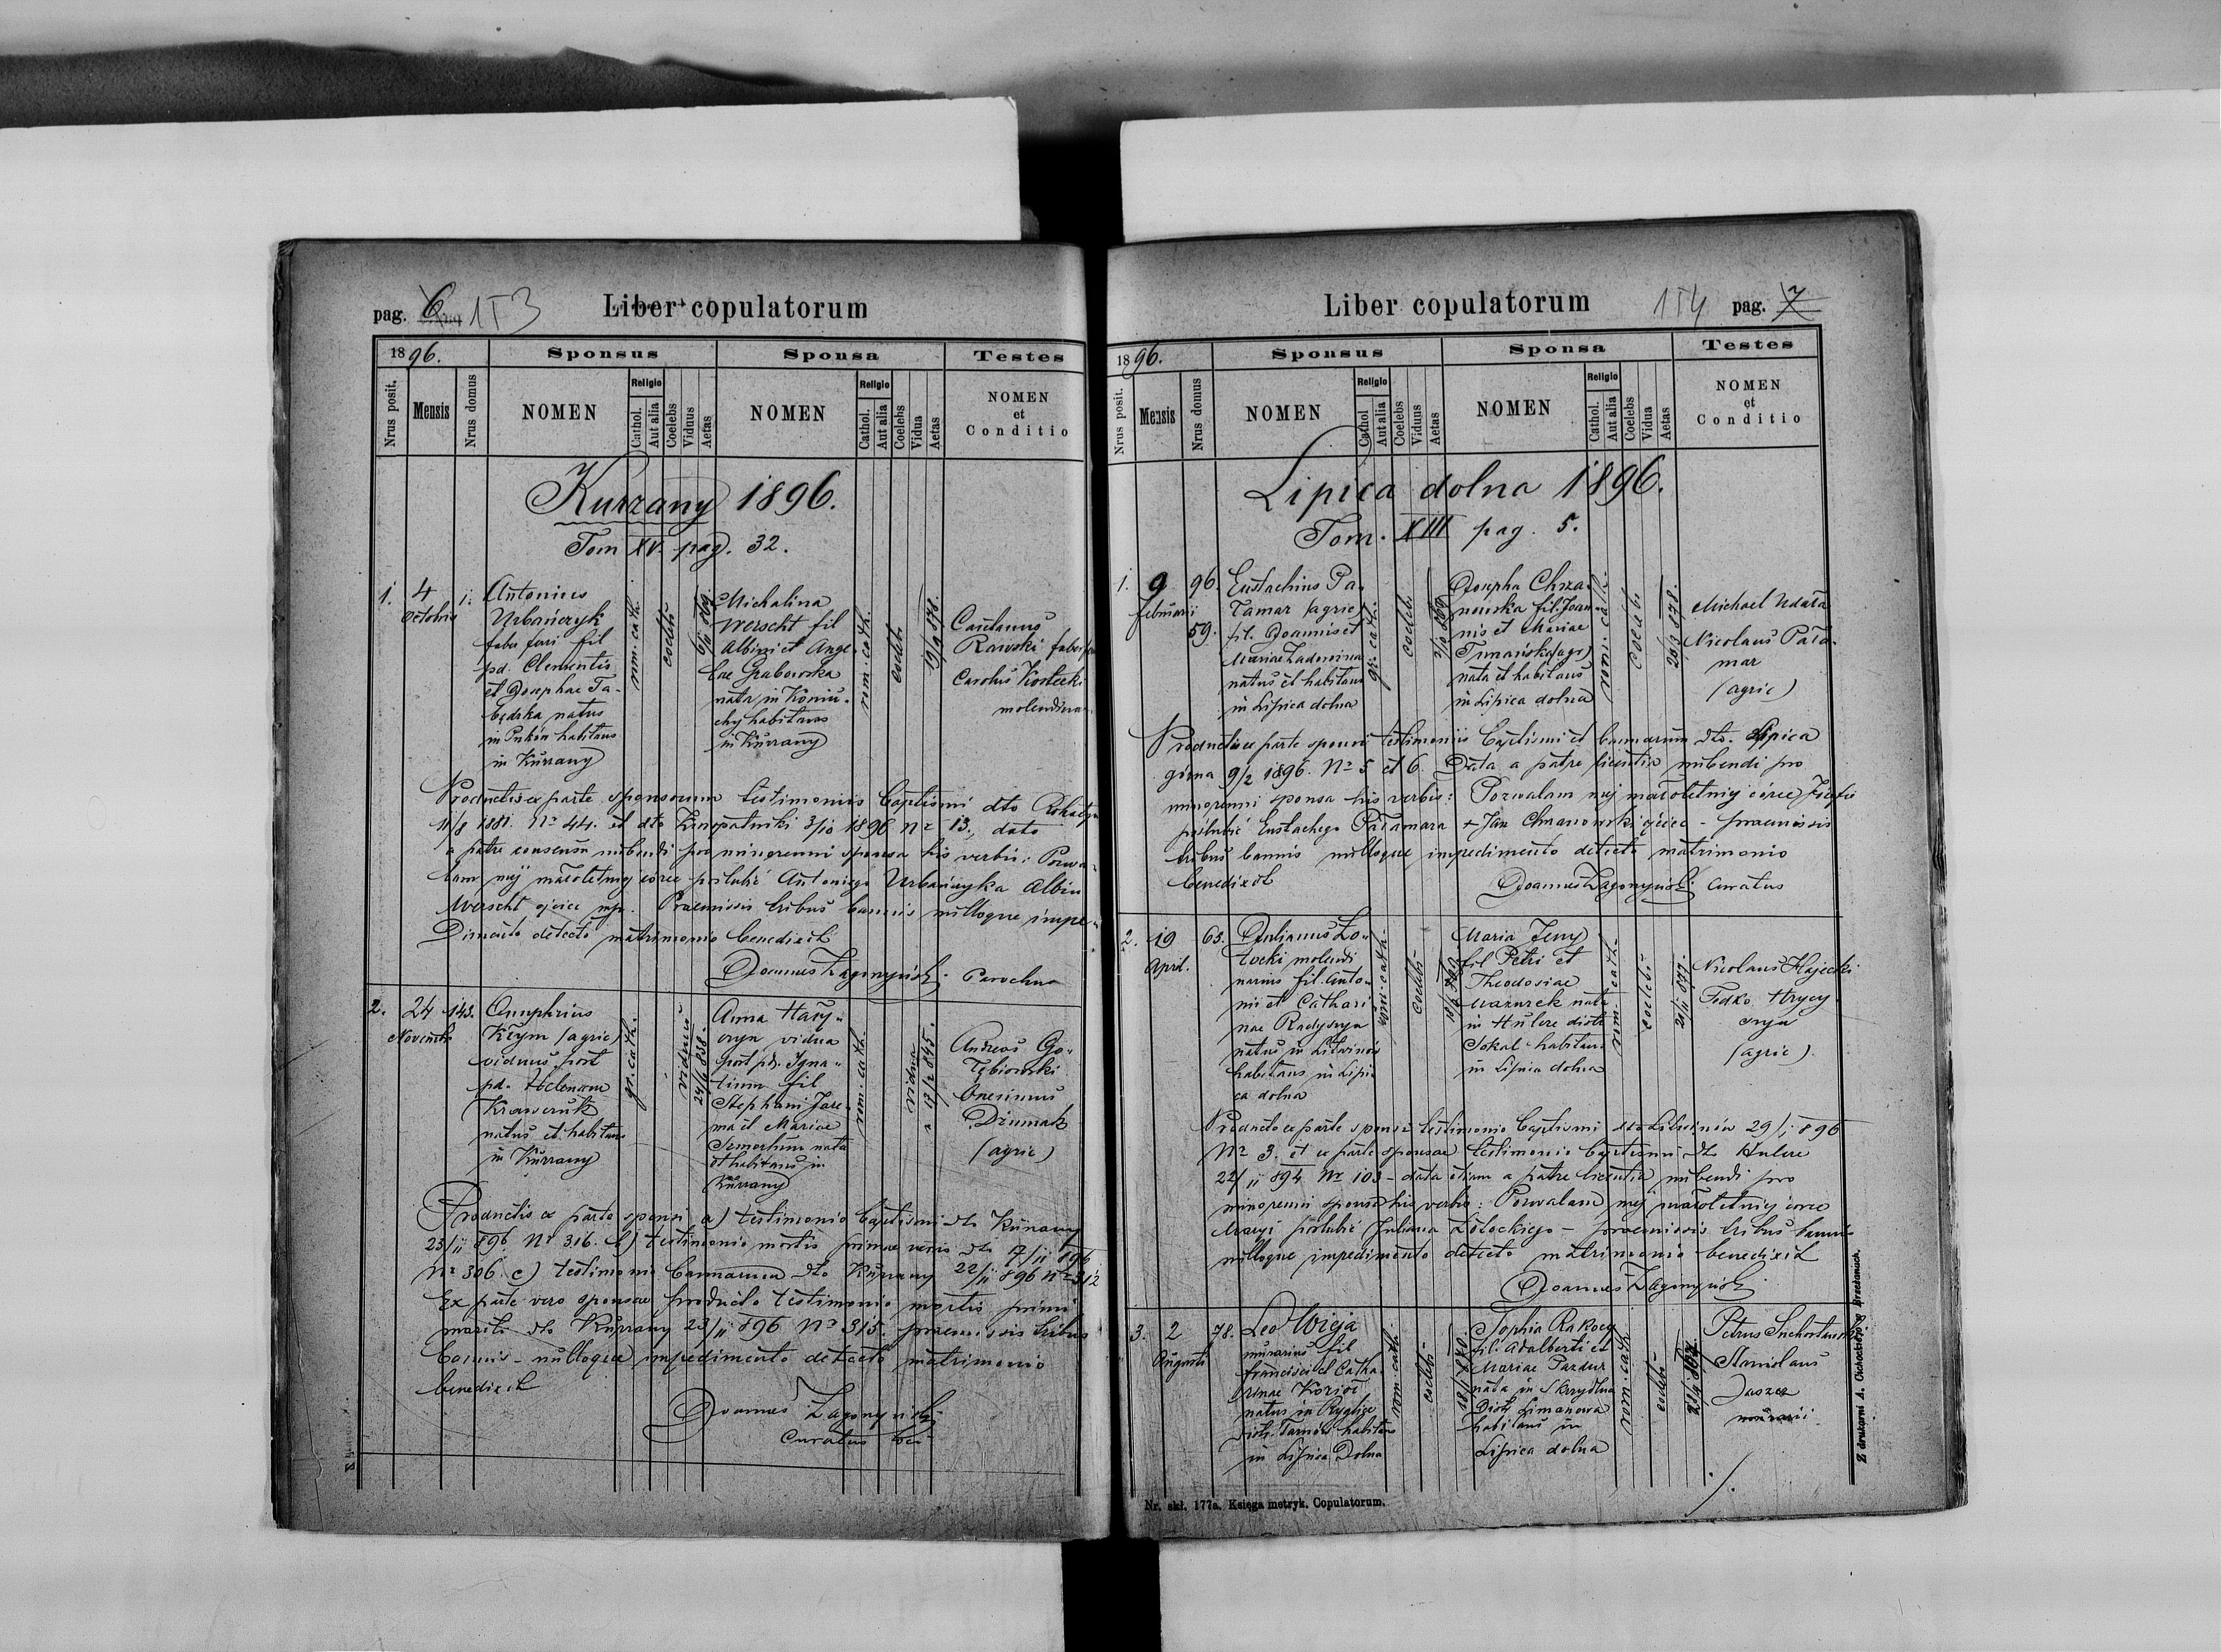 pag. 6 153
Liber copulatorum
1896.
Sponsus
Sponsa
Testes
Nrus posit.
Mensis
Nrus domus
NOMEN
Religio
Cathol.
Aut alia
Coelebs
Viduus
Aetas
NOMEN
Religio
Cathol.
Aut alia
Coelebs
Vidua
Aetas
NOMEN
et
Conditio
Kurzany 1896.
Tom XV. pag. 32.
1. 4 Octobris 1.
Antonius
Urbańczyk
faber fari fil
pd. Clementis
et Josephae
natus
in habitans
in Kurzany
rom. cath.
coelebs
Michalina
Werscht fil
Albini et Ange
lae Grabowska
nata in Koniu
chy habitans
in Kurzany
rom. cath.
coelebs
19/9 878.
Rawski faber
Carolus Kostecki
Productis ex parte sponsorum testimoniis baptismi dto
11/8 1881. Nr 44. et dto 3/10 1896 Nr 13., dato
a patre consensu nubendi pro minorenni sponsa his verbis: Pozwa
lam mej małoletniej córce poślubić Antoniego Urbańczyka Albin
Werscht ojciec mp. Praemissis tribus bannis nulloque impe
dimento detecto matrimonio benedixit
Joannes Parochus
2. 24 Novembris 143.
Onuphrius
Krym (agric)
viduus post
pd. Helenam
Krawczuk
natus et habitans
in Kurzany
gr. cath.
viduus
24/6 838.
Anna Hary
vidua
post pd. Igna
tium fil
Stephani Jare
ma et Mariae
nata
et habitans in
Kurzany
rom. cath.
vidua
17/2 845.
Andreas Go
łębiowski
Onesimus
Dziumak
(agric)
Productis ex parte sponsi a) testimonio baptismi dto Kurzany
23/11 896 Nr 316. b) testimonio mortis primae uxoris dto 17/11 896
Nr 306. c) testimonio bannorum dto Kurzany 22/11 896 Nr 312
Ex parte vero sponsae producto testimonio mortis primi
mariti dto Kurzany 23/11 896 Nr 315. praemissis tribus
bannis nulloque impedimento detecto matrimonio
benedixit
Joannes
Curatus
Liber copulatorum
154 pag. 7
1896.
Sponsus
Sponsa
Testes
Nrus posit.
Mensis
Nrus domus
NOMEN
Religio
Cathol
Aut alia
Coelebs
Viduus
Aetas
NOMEN
Religio
Cathol.
Aut alia
Coelebs
Vidua
Aetas
NOMEN
et
Conditio
Lipica dolna 1896.
Tom. XIII pag. 5.
1. 9 Februarii 96
59.
Eustachius Pa
łamar (agric)
fil. Joannis et
Mariae
natus et habitans
in Lipica dolna
gr. cath.
coelebs
Josepha Chrza
nowska fil. Joan
nis et Mariae
nata et habitans
in Lipica dolna
rom. cath.
coelebs
20/3 878.
Michael
Nicolaus Pała
mar
(agric)
Productis ex parte sponsi testimoniis baptismi et bannorum dto. Lipica
górna 9/2 1896. Nr 5 et 6. Data a patre licentia nubendi pro
minorenni sponsa his verbis: Pozwalam mej małoletniej córce Józefie
poślubić Eustachego Pałamara + Jan Chrzanowski ojciec - praemissis
tribus bannis nulloque impedimento detecto matrimonio
benedixit
Joannes Curatus
2. 19 April. 63.
Julianus Zo
łocki molendi
narius fil. Anto
nii et Cathari
nae
natus in Litwinów
habitans in Lipi
ca dolna
rom. cath.
coelebs
Maria Jeny
fil Petri et
Theodosiae
Mazurek nata
in Hulcze distr
Sokal habitans
in Lipica dolna
rom. cath.
coelebs
Nicolaus Hajecki
Fedko
(agric)
Producto ex parte sponsi testimonio baptismi dto Litwinów 29/1 896
Nr 3. et ex parte sponsae testimonio baptismi dto Hulcze
22/11 894 Nr 103 - data etiam a patre licentia nubendi pro
minorenni sponsa his verbis: Pozwalam mej małoletniej córce
Maryi poślubić Juliana Zołockiego - praemissis tribus bannis
nulloque impedimento detecto matrimonio benedixit
Joannes
3. 2 Augusti 78.
Leo Wieja
murarius fil
Francisci et Catha
rinae Kozioł
natus in Ryglice
distr. Tarnów habitans
in Lipica Dolna
rom. cath.
coelebs
Sophia Rakoczy
fil. Adalberti et
Mariae Pazdur
nata in Skrzydlna
Distr Limanowa
habitans in
Lipica dolna
rom. cath.
coelebs
Petrus
Stanislaus
Jaszcz
murarii
Nr. skł. 177a. Księga metryk. Copulatorum.
Z drukarni A. Brzeżanach.